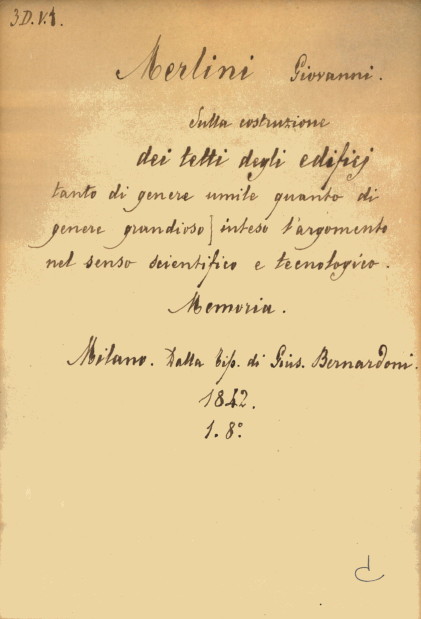 3 D. V. 1.
Merlini Giovanni.
Sulla costruzione
dei tetti degli edifizj
tanto di genere umile quanto di
genere grandioso] inteso l'argomento
nel senso scientifico e tecnologico.
Memoria.
Milano. Dalla tip. di Gius. Bernardoni.
1842.
1. 8.°